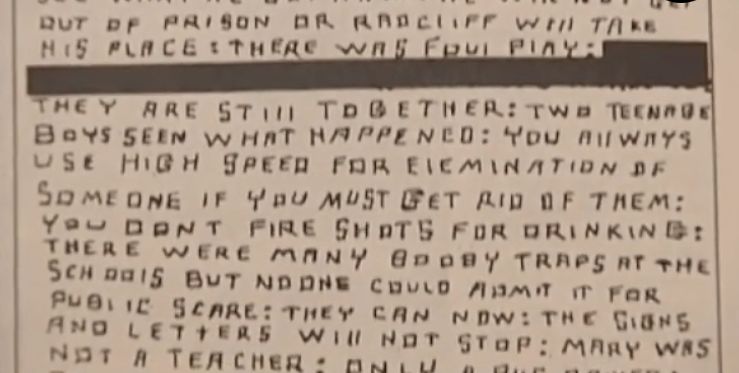 OUT OF PRISON OR RADCLIFF WIll TAKE
HIS PLACE: THERE WAS FOUl PlAY:
THEY ARE STIll TOGETHER: TWO TEENAGE
BOYS SEEN WHAT HAPPENED: YOU AllWAYS
USE HIGH SPEED FOR ElEMINATION OF
SOMEONE IF YOU MUST GET RID OF THEM:
YOU DONT FIRE SHOTS FOR DRINKING:
THERE WERE MANY BOOBY TRAPS AT THE
SCHOOlS BUT NOONE COULD ADMIT IT FOR
PUBlIC SCARE: THEY CAN NOW: THE SIGNS
AND LETTERS WIll NOT STOP: MARY WAS
NOT A TEACHER: ONLY A